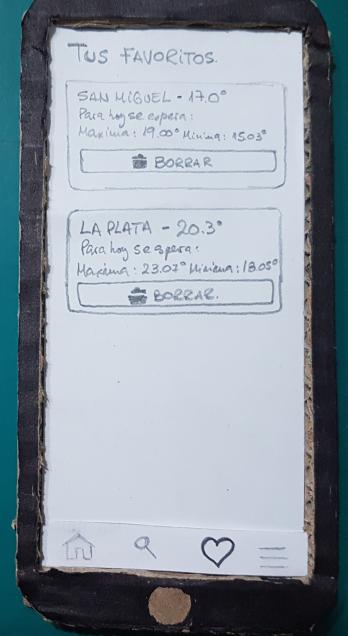 TUS FAVORITOS.
SAN MIGUEL - 17.0°
Para hoy se espera:
Maxima: 19.00° Minima: 15.03°
BORRAR
LA PLATA - 20.3°
Para hoy se espera:
Maxima: 23.07° Minima: 18.05°
BORRAR.